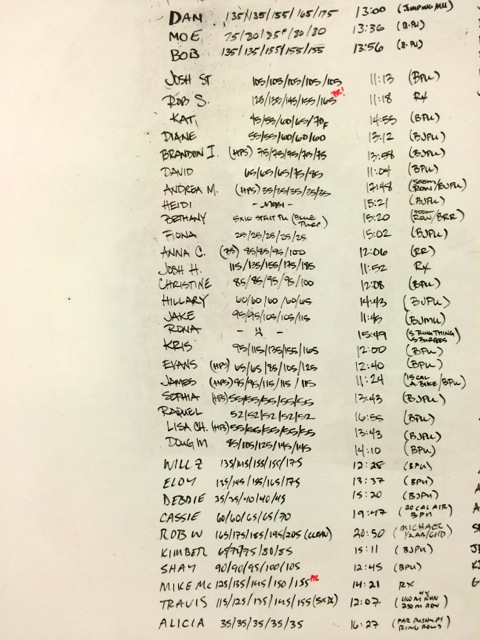 DAN 135/135/155/165/175 13:00 (JUMPING MU)
MOE 75/80/85F/80/80 13:36 (B.PU)
BOB 135/135/155/155/155 13:56 (B.PU)
JOSH ST 105/105/105/105/105 11:13 (BPU)
ROB S. 125/130/145/155/165 PR! 11:18 RX
KAT 45/55/60/65/70F 14:55 (BPU)
DIANE 55/55/60/60/60 13:12 (BJPU)
BRANDON I. (HPS) 75/75/75/75/75 13:58 (BJPU)
DAVID 65/65/65/75/85 11:04 (BPU)
ANDREA M. (HPS) 35/35/35/35/35 12:48 (500M ROW/BJPU)
HEIDI 15:21 (BJPU)
BETHANY 5X10 STRICT PU (BLUE 15:20 (500M ROW/BRR)
FIONA 25/25/25/25/25 15:02 (BJPU)
ANNA C. (75) 85/85/95/100 12:06 (RR)
JOSH H. 115/135/155/175/185 11:52 RX
CHRISTINE 85/85/95/95/100 12:08 (BPU)
HILLARY 60/60/60/60/65 14:43 (BJPU)
JAKE 95/95/105/105/115 11:45 (BJMU)
RONA 15:49
KRIS 95/115/135/155/165 12:00 (BPU)
EVANS (HPS) 65/65/85/105/125 12:40 (BPU)
JAMES (HPS) 95/95/115/115/115 11:24 (15 CAL A.BIKE/BPU)
SOPHIA (HPS) 55/55/55/55/55 13:43 (BJPU)
RAQUEL 52/52/52/52/52 16:55 (BPU)
LISA CH. (HPS) 55/55/55/55/55 13:43 (BJPU)
DOUG M 85/105/125/145/145 14:10 (BPU)
WILL Z 135/145/155/155/175 12:28 (BPU)
ELOY 135/145/155/165/175 13:37 (BPU)
DEBBIE 35/35/40/40/45 15:20 (BJPU)
CASSIE 60/60/65/65/70 19:47 (20 CAL AIR BPU)
ROB W 165/175/185/195/205 (CLEAN) 20:50 (MICHAEL
KIMBER 65/70/75/80/85 15:11 (BJPU)
SHAY 90/90/95/100/105 12:45 (BPU)
MIKE MC 125/135/145/150/155 PR 14:21 RX
TRAVIS 115/125/135/145/155 (5X3X) 12:07 (400M RUN 250M ROW)
ALICIA 35/35/35/35/35 16:27 (PAR PUSHUPS RING ROWS)